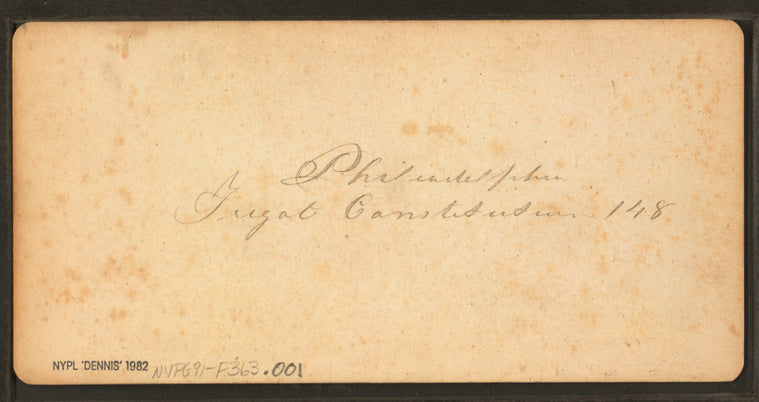 Philiadelphia
Frigat Constitution 148
NYPL 'DENNIS' 1982 NYPG91-F363.001